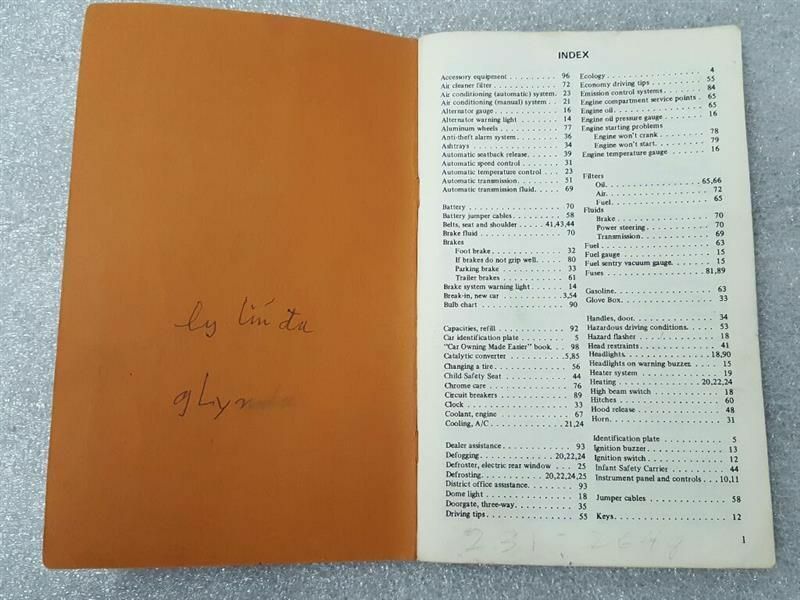 ly lín đa
INDEX
Accessory equipment . . . . . . . . 96
Air cleaner filter . . . . . . . . . . . 72
Air conditioning (automatic) system. 23
Air conditioning (manual) system . . 21
Alternator gauge . . . . . . . . . . . 16
Alternator warning light . . . . . . . 14
Aluminum wheels . . . . . . . . . . . 77
Anti-theft alarm system . . . . . . . . 36
Ashtrays . . . . . . . . . . . . . . . 34
Automatic seatback release. . . . . . . 39
Automatic speed control . . . . . . . 31
Automatic temperature control . . . . 23
Automatic transmission. . . . . . . . 51
Automatic transmission fluid. . . . . . 69
Battery . . . . . . . . . . . . . . . 70
Battery jumper cables. . . . . . . . . 58
Belts, seat and shoulder . . . . 41,43,44
Brake fluid . . . . . . . . . . . . . . 70
Brakes
Foot brake. . . . . . . . . . . . . 32
If brakes do not grip well. . . . . . 80
Parking brake . . . . . . . . . . . 33
Trailer brakes . . . . . . . . . . . 61
Brake system warning light . . . . . . 14
Break-in, new car . . . . . . . . . . 3,54
Bulb chart . . . . . . . . . . . . . . 90
Capacities, refill . . . . . . . . . . . 92
Car identification plate . . . . . . . . 5
"Car Owning Made Easier" book. . . . 98
Catalytic converter . . . . . . . . . 5,85
Changing a tire. . . . . . . . . . . . 56
Child Safety Seat . . . . . . . . . . 44
Chrome care . . . . . . . . . . . . . 76
Circuit breakers . . . . . . . . . . . 89
Clock . . . . . . . . . . . . . . . . 33
Coolant, engine . . . . . . . . . . . 67
Cooling, A/C . . . . . . . . . . . . 21,24
Dealer assistance. . . . . . . . . . . 93
Defogging . . . . . . . . . . . 20,22,24
Defroster, electric rear window . . . 25
Defrosting. . . . . . . . . . 20,22,24,25
District office assistance. . . . . . . 93
Dome light . . . . . . . . . . . . . . 18
Doorgate, three-way. . . . . . . . . . 35
Driving tips. . . . . . . . . . . . . . 55
Ecology . . . . . . . . . . . . . . . 4
Economy driving tips . . . . . . . . . 55
Emission control systems . . . . . . . 84
Engine compartment service points . 65
Engine oil. . . . . . . . . . . . . . . 65
Engine oil pressure gauge . . . . . . . 16
Engine starting problems
Engine won't crank . . . . . . . . 78
Engine won't start. . . . . . . . . . 79
Engine temperature gauge . . . . . . . 16
Filters
Oil. . . . . . . . . . . . . . . . 65,66
Air. . . . . . . . . . . . . . . . . 72
Fuel. . . . . . . . . . . . . . . . 65
Fluids
Brake . . . . . . . . . . . . . . . 70
Power steering . . . . . . . . . . 70
Transmission. . . . . . . . . . . . 69
Fuel . . . . . . . . . . . . . . . . . 63
Fuel gauge . . . . . . . . . . . . . . 15
Fuel sentry vacuum gauge. . . . . . . 15
Fuses . . . . . . . . . . . . . . . 81,89
Gasoline. . . . . . . . . . . . . . . 63
Glove Box. . . . . . . . . . . . . . . 33
Handles, door. . . . . . . . . . . . . 34
Hazardous driving conditions. . . . . . 53
Hazard flasher . . . . . . . . . . . . 18
Head restraints . . . . . . . . . . . . 41
Headlights. . . . . . . . . . . . . 18,90
Headlights on warning buzzer. . . . . 15
Heater system . . . . . . . . . . . . 19
Heating . . . . . . . . . . . . 20,22,24
High beam switch . . . . . . . . . . . 18
Hitches . . . . . . . . . . . . . . . 60
Hood release . . . . . . . . . . . . . 48
Horn. . . . . . . . . . . . . . . . . 31
Identification plate . . . . . . . . . . 5
Ignition buzzer. . . . . . . . . . . . 13
Ignition switch. . . . . . . . . . . . 12
Infant Safety Carrier . . . . . . . . . 44
Instrument panel and controls . . . 10,11
Jumper cables . . . . . . . . . . . . 58
Keys. . . . . . . . . . . . . . . . . 12
1